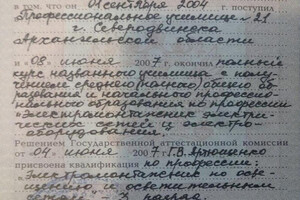 в том, что он 01 сентября 2004 г. поступил
в Профессиональное училище - 21
г. Северодвинска
Архангельской области
и «08» июня 2007 г. окончил полный
курс названного училища с полу-
чением среднего (полного) общего об-
разования и начального професси-
онального образования по профессии
«Электромонтажник электри-
ческих сетей и электро-
оборудования».
Решением Государственной аттестационной комиссии
от 04 июня 2007 Г.В.
присвоена квалификация по профессии:
«Электромонтажник по осве-
щению и осветительным
сетям» 3 разряд